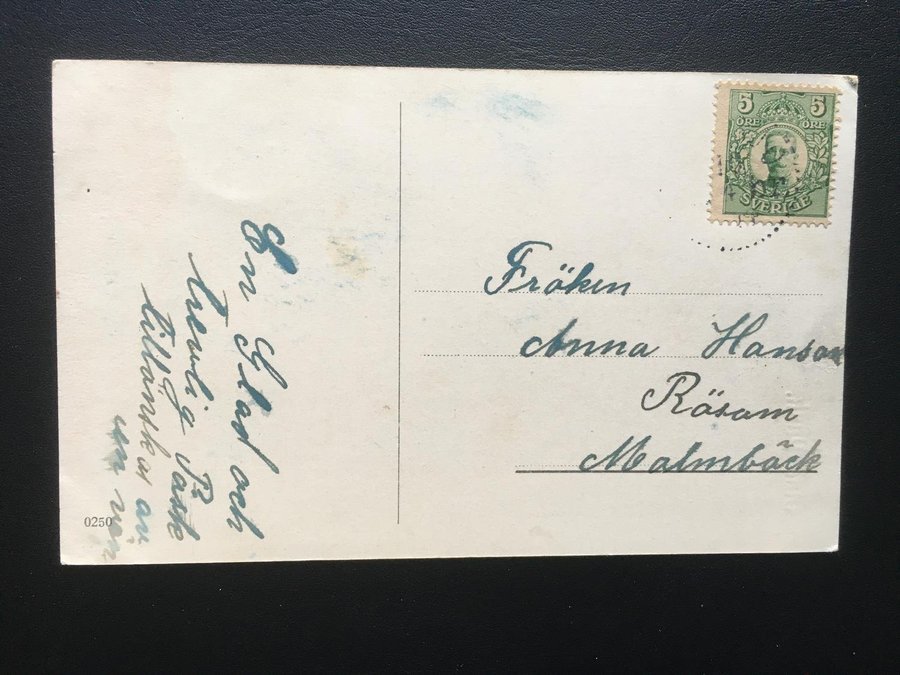 5 5
ÖRE ÖRE
SVERIGE
Fröken
Anna Hanson
Rösom
Malmbäck
En Glad och
trevlig Påsk
tillönskas av
en vän
0250